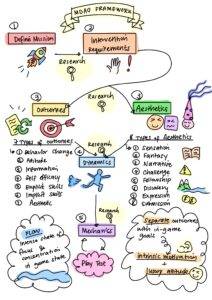 MDAO FRAMEWORK
① Define Mission
② Intervention Requirements
Research
③ Outcomes
Research
④ Aesthetics
7 Types of outcomes
① Behavior Change
② Attitude
③ Information
④ Self Efficacy
⑤ Implicit Skills
⑥ Explicit Skills
⑦
8 Types of Aesthetics
① Sensation
② Fantasy
③ Narrative
④ Challenge
⑤ Fellowship
⑥ Discovery
⑦ Expression
⑧ Submission
Research
Dynamics
Research
Mechanics
Play Test
FLOW
Intense state of
focus &
concentration
in game state
Separate outcomes
with in-game
goals
intrinsic motivation
+
attitude